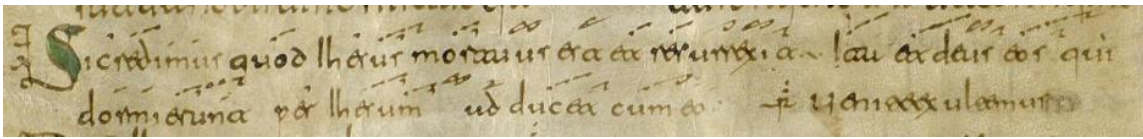 Si credimus quod Ihesus mortuus est et resurrexit ita et deus eos qui
dormierunt per Ihesum adducet cum eo Venite exultemus